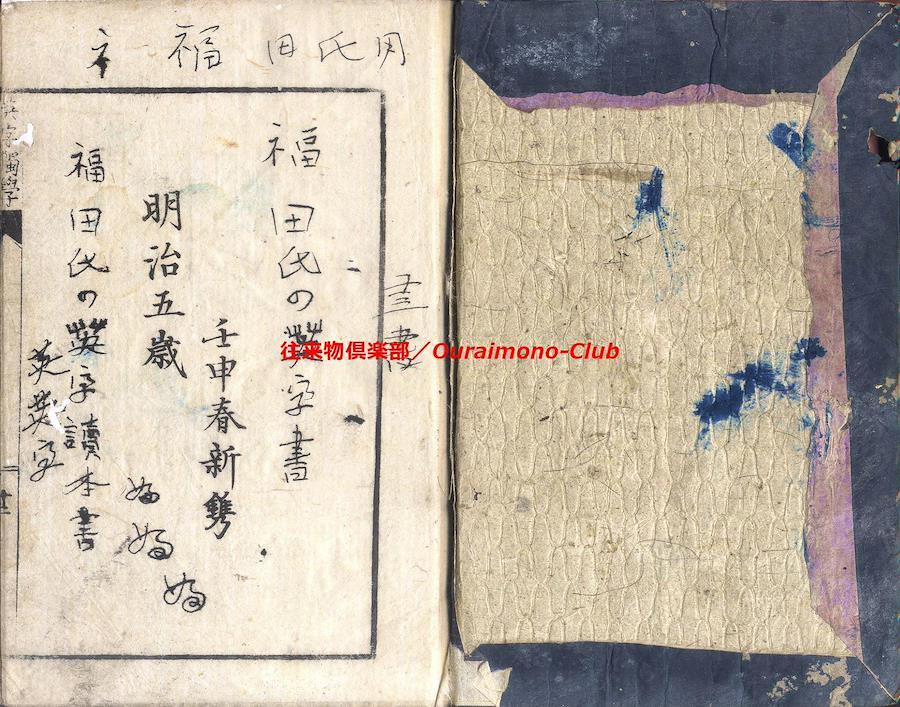 福田氏用
ネ
福田氏の英字書
壬申春新鐫
明治五歳
福田氏の英字讀本書
英英字
英字獨學
往来物倶楽部／Ouraimono-Club